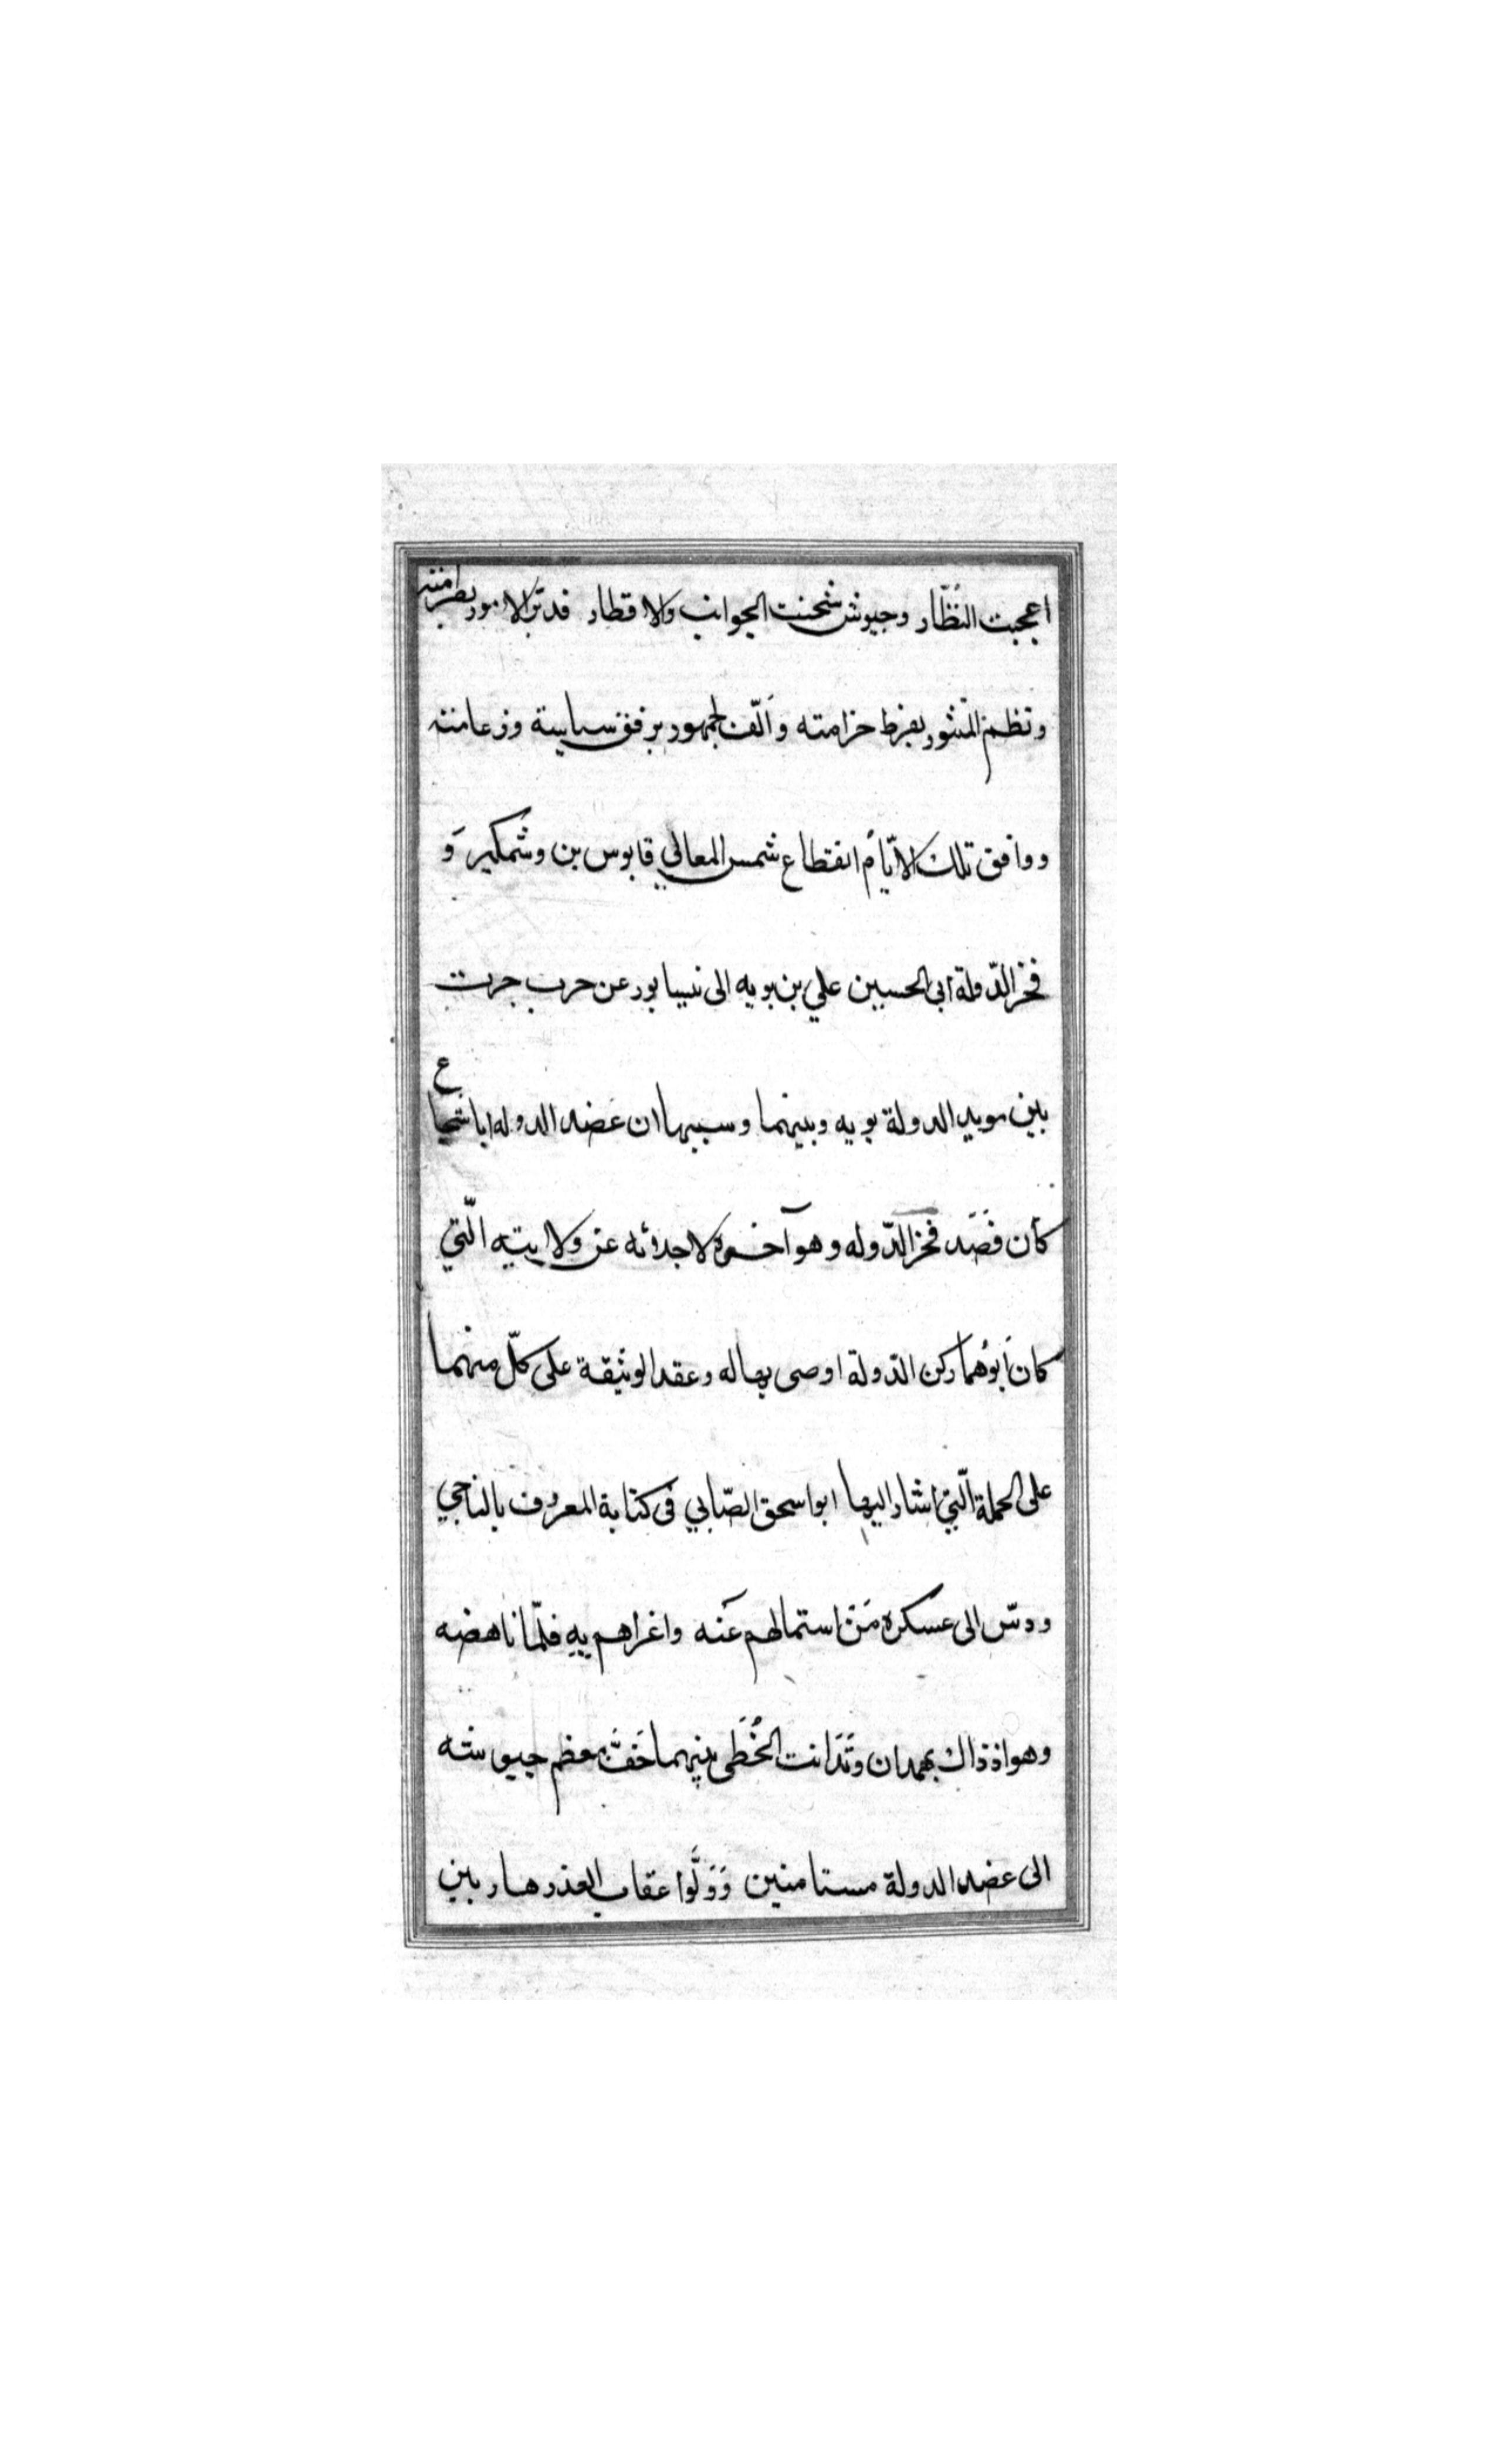 اعجبت النُظّار وجيوش شحنت الجوانب والاقطار فدبّر الامور بصرامته
ونظم المنثور بفرط حزامته وَالّف الجمهور برفق سياسة وزعامته
ووافق تلك الايّام انقطاع شمس المعالي قابوس بن وشمكير وَ
فخر الدّولة ابى الحسين علي بن بويه الى نيسابور عن حرب جرت
بين مويد الدولة بويه وبينهما وسببها ان عضد الدوله ابا شجاع
كان قصَد فخر الدّوله وهو آخره لاجلائه عن ولايته الّتي
كان اَبوُهما ركن الدّولة اوصى بها له وعقد الوثيقة على كلّ منهما
على الجملة الّتي اشار اليها ابو اسحق الصّابي فى كتابة المعروف بالتاجي
ودسّ الى عسكره مَنْ استمالهم عَنه واغراهم بِهِ فلمّا ناهضه
وهو اذ ذاك بهمدان وتَدَانت الخُطَى بينهما خَفَّ معظم جيوشه
الى عضد الدولة مستامنين وَوَلَّوا عقاب الغدر هاربين